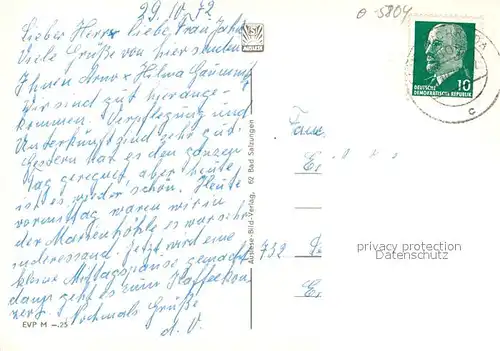 29.10.72
Lieber Herr, liebe Frau Jahn
Viele Grüße von hier senden
Ihnen Arno + Hilma
Wir sind gut hierange-
kommen. Verpflegung und
Unterkunft sind sehr gut.
Gestern hat es den ganzen
Tag geregnet, aber heute
ist es wieder schön. Heute
vormittag waren wir in
der Marienhöhle es war sehr
interessand. Jetzt wird eine
kleine Mittagspause gemacht
dann geht es zum Kaffeekon-
zert. Nochmals Grüße
d. O.
EVP M –.25
AUSLESE
Auslese-Bild-Verlag, 62 Bad Salzungen
5804
DEUTSCHE
DEMOKRATISCHE REPUBLIK
10
c
Fam.
E.
732 G.
E.
privacy protection
Datenschutz